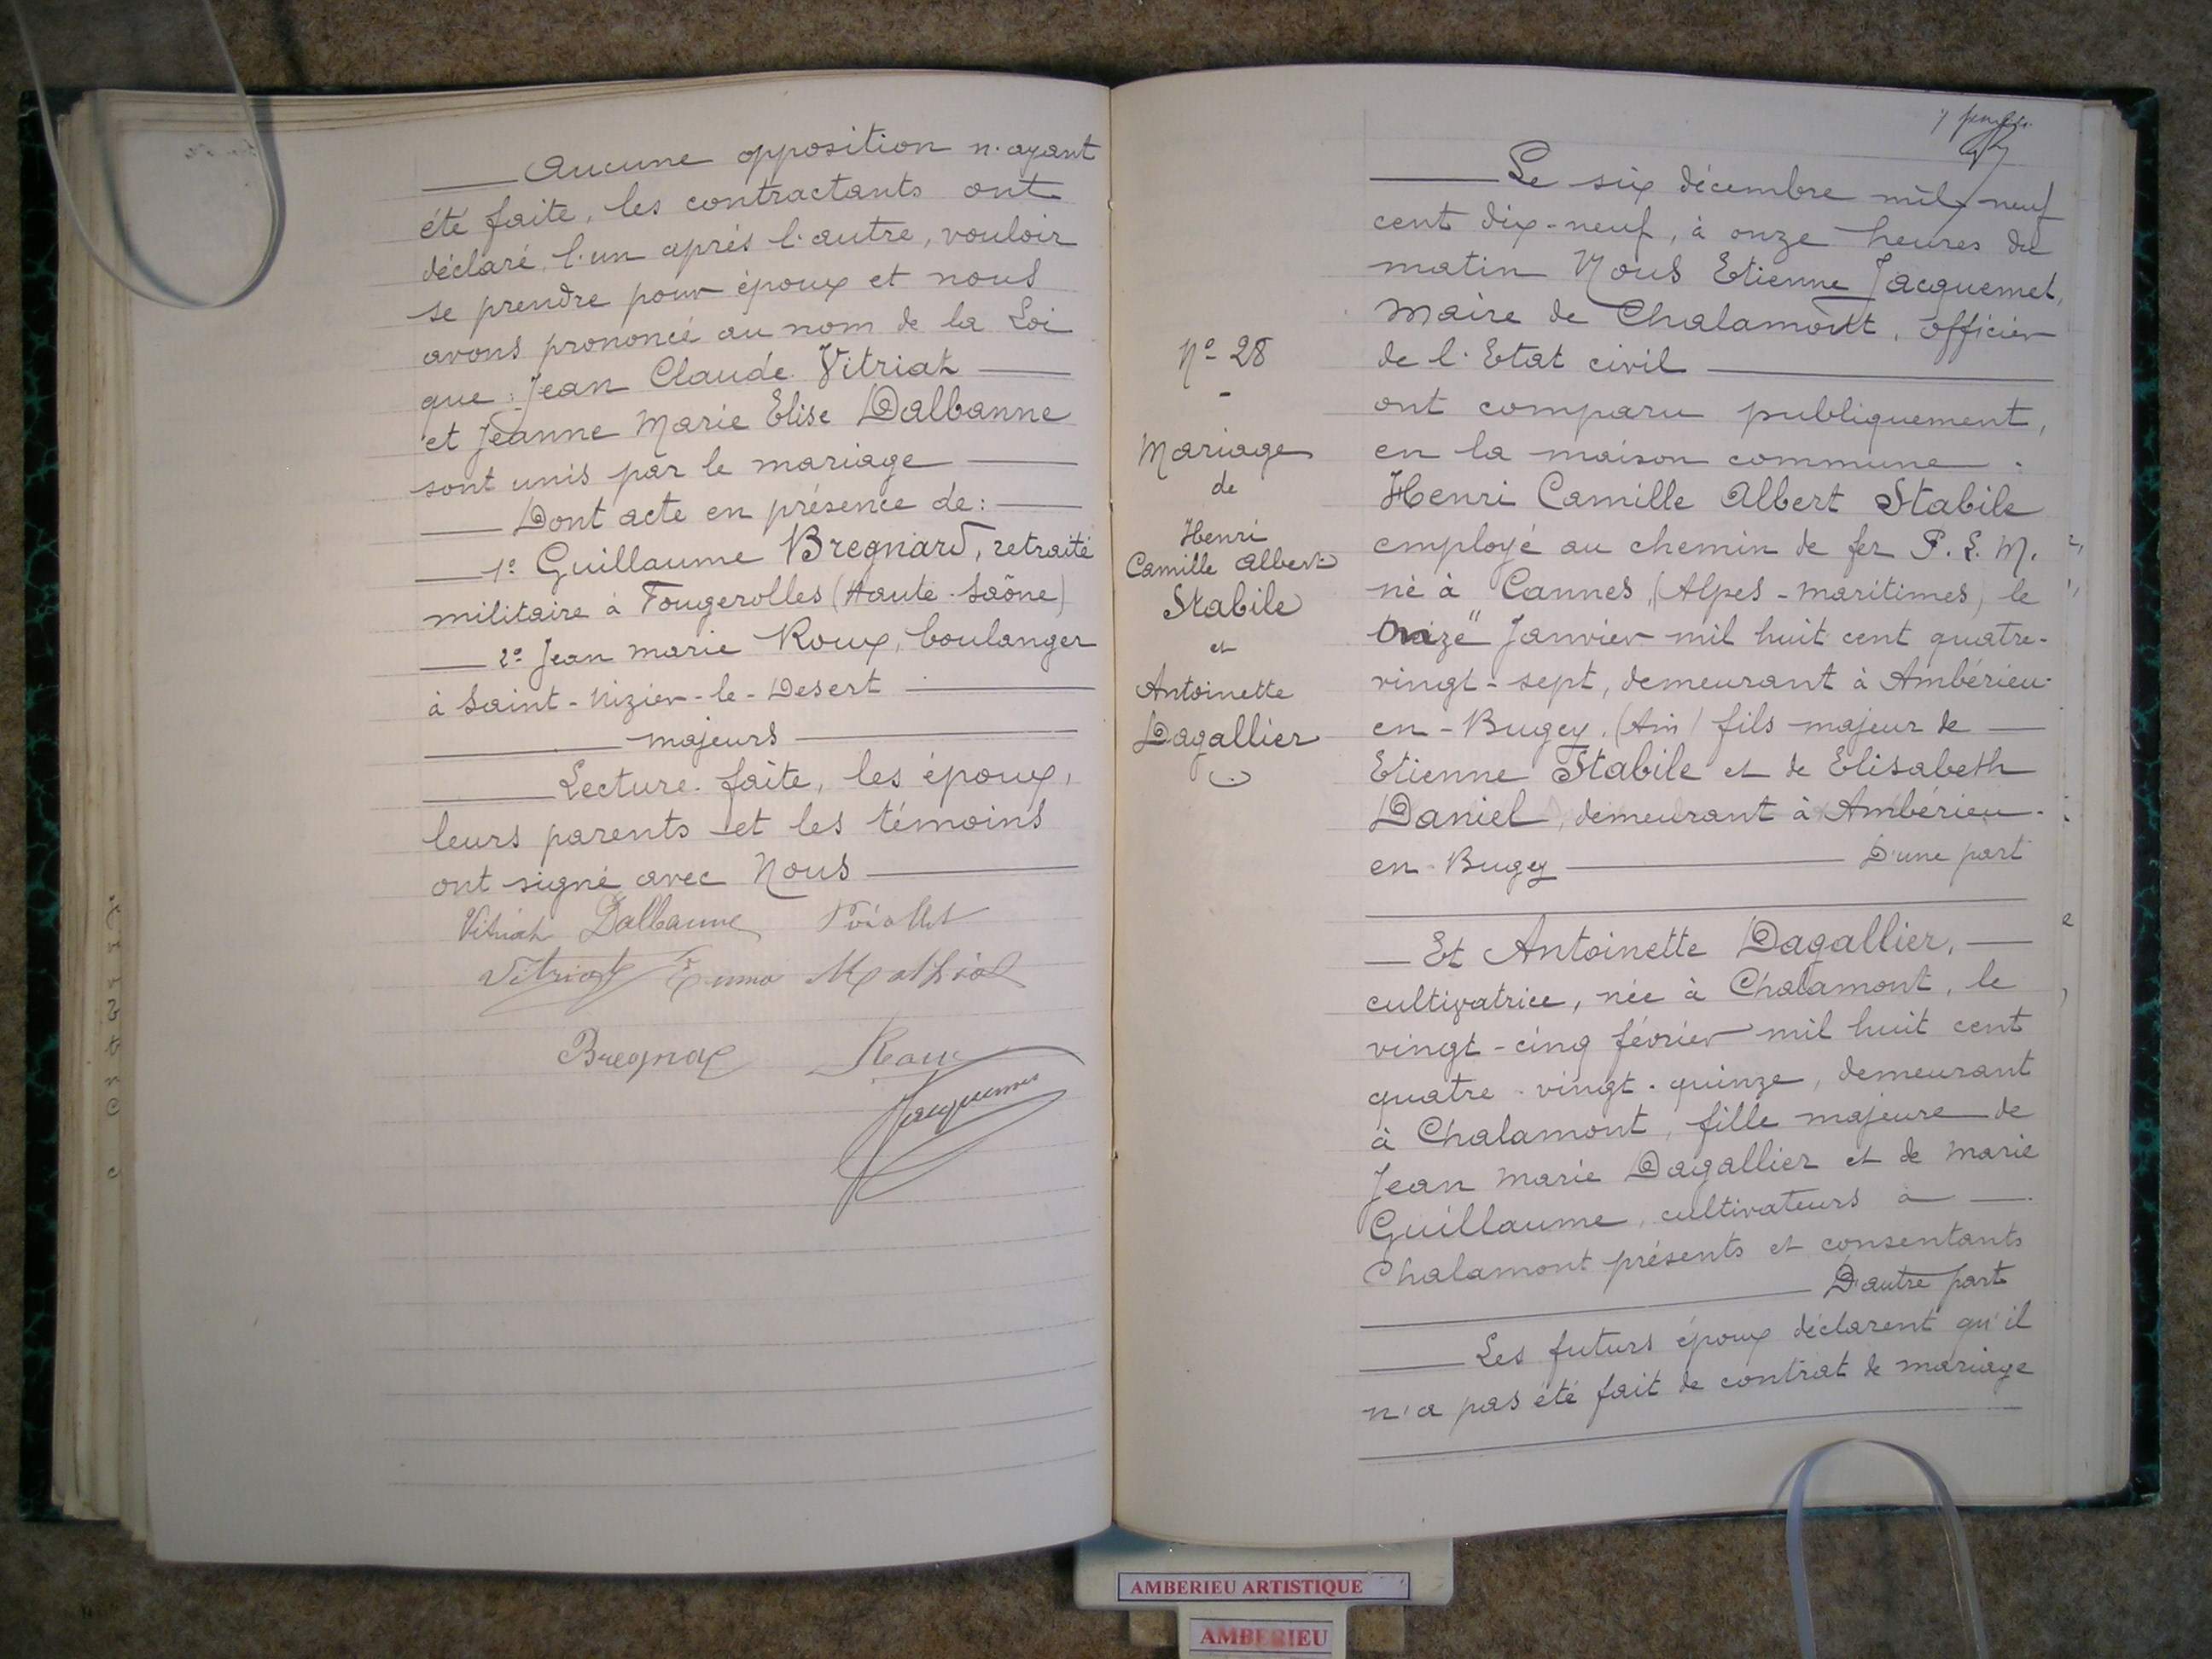 Aucune opposition n'ayant
été faite, les contractants ont
déclaré, l'un après l'autre, vouloir
se prendre pour époux et nous
avons prononcé au nom de la Loi
que : Jean Claude Vitriat
et Jeanne Marie Elise Dalbanne
sont unis par le mariage
Dont acte en présence de :
1º Guillaume Bregnard, retraité
militaire à Fougerolles (Haute-Saône)
2º Jean marie Roux, boulanger
à Saint-Nizier-le-Desert
majeurs
Lecture faite, les époux,
leurs parents et les témoins
ont signé avec Nous
Vitriat Dalbanne
Vitriat Emma
Roux
Jacquemet
Le six décembre mil neuf
cent dix-neuf, à onze heures du
matin Nous Etienne Jacquemet,
Maire de Chalamont, officier
de l'Etat civil
ont comparu publiquement,
en la maison commune :
Henri Camille Albert Stabile
employé au chemin de fer P. L. M.
né à Cannes, (Alpes-maritimes) le
Janvier mil huit cent quatre-
vingt-sept, demeurant à Ambérieu-
en-Bugey. (Ain) fils majeur de
Etienne Stabile et de Elisabeth
Daniel, demeurant à Ambérieu-
en-Bugey D'une part
Et Antoinette Dagallier,
cultivatrice, née à Chalamont, le
vingt-cinq février mil huit cent
quatre-vingt-quinze, demeurant
à Chalamont, fille majeure de
Jean Marie Dagallier et de Marie
Guillaume, cultivateurs à
Chalamont présents et consentants
D'autre part
Les futurs époux déclarent qu'il
n'a pas été fait de contrat de mariage
Nº 28
Mariage
de
Henri
Camille Albert
Stabile
et
Antoinette
Dagallier
AMBERIEU ARTISTIQUE
AMBERIEU